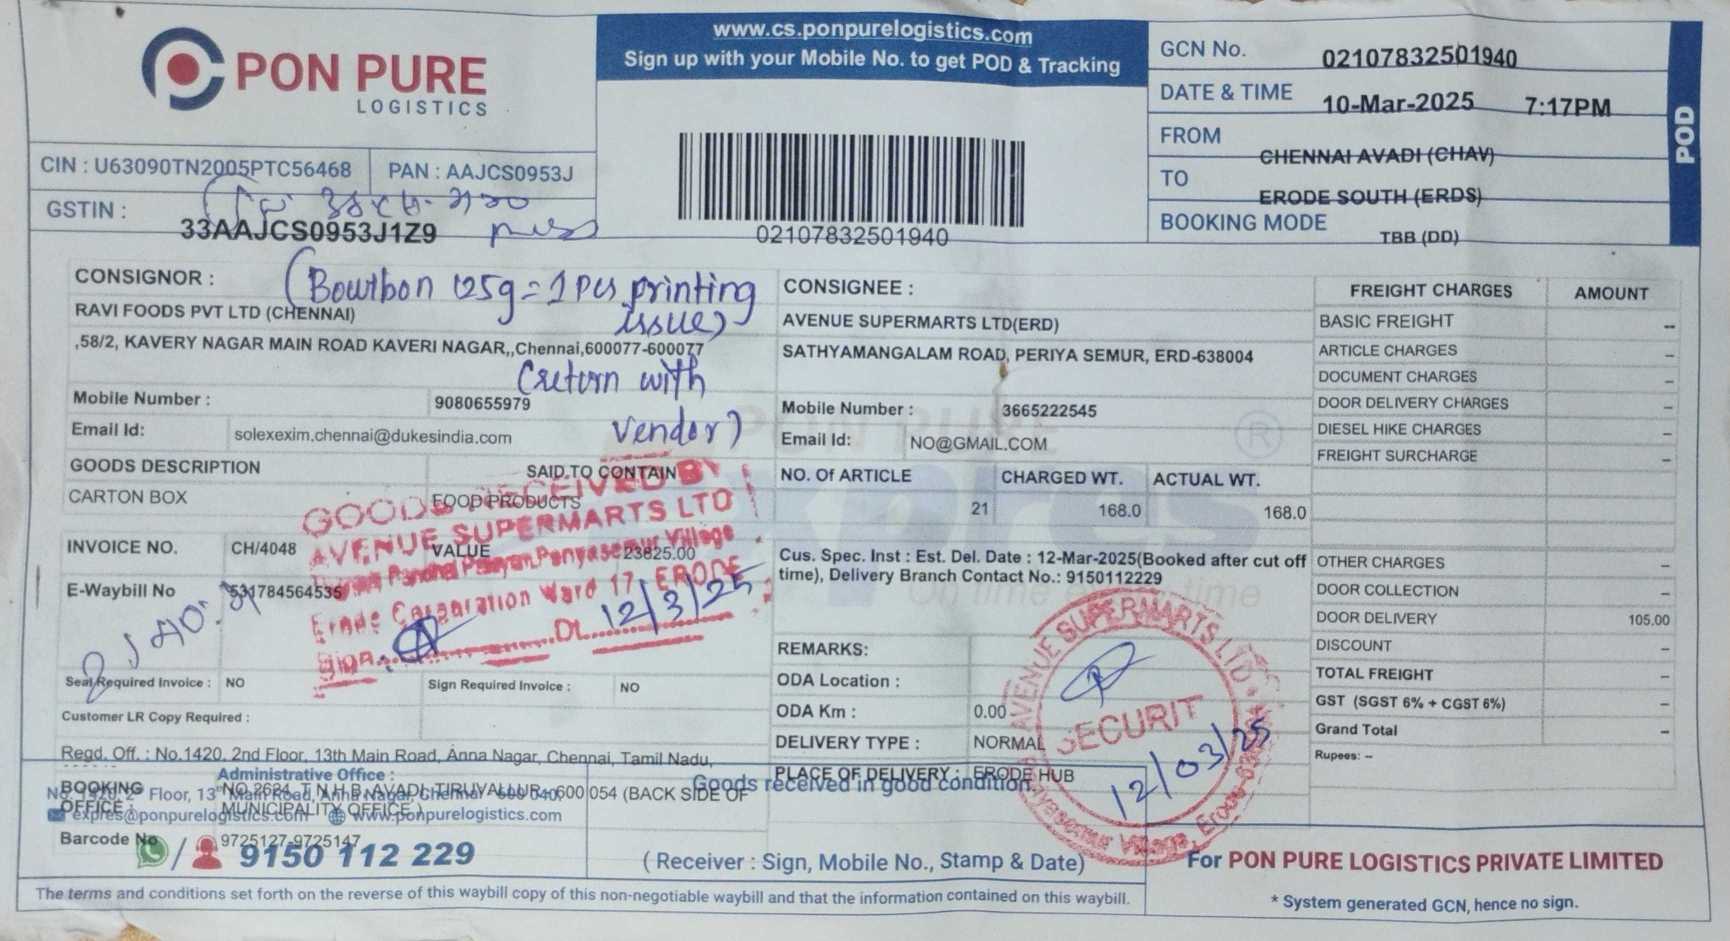 PON PURE
LOGISTICS
www.cs.ponpurelogistics.com
Sign up with your Mobile No. to get POD & Tracking
GCN No. 02107832501940
DATE & TIME 10-Mar-2025 7:17PM
FROM CHENNAI AVADI (CHAV)
TO ERODE SOUTH (ERDS)
BOOKING MODE TBB (DD)
POD
CIN : U63090TN2005PTC56468 PAN : AAJCS0953J
GSTIN : 33AAJCS0953J1Z9
02107832501940
CONSIGNOR :
RAVI FOODS PVT LTD (CHENNAI)
,58/2, KAVERY NAGAR MAIN ROAD KAVERI NAGAR,,Chennai,600077-600077
Mobile Number : 9080655979
Email Id: solexexim,chennai@dukesindia.com
(Bourbon 125g = 1 Pcs printing
issue)
(return with
vendor)
CONSIGNEE :
AVENUE SUPERMARTS LTD(ERD)
SATHYAMANGALAM ROAD, PERIYA SEMUR, ERD-638004
Mobile Number : 3665222545
Email Id: NO@GMAIL.COM
GOODS DESCRIPTION SAID TO CONTAIN
CARTON BOX FOOD PRODUCTS
NO. Of ARTICLE CHARGED WT. ACTUAL WT.
21 168.0 168.0
INVOICE NO. CH/4048 VALUE 23825.00
E-Waybill No 531784564535
GOODS RECEIVED BY
AVENUE SUPERMARTS LTD
Village
Erode Corporation Ward 17, ERODE
Sign. Dt. 12/3/25
Cus. Spec. Inst : Est. Del. Date : 12-Mar-2025(Booked after cut off
time), Delivery Branch Contact No.: 9150112229
On time
Seal Required Invoice : NO Sign Required Invoice : NO
Customer LR Copy Required :
REMARKS:
ODA Location :
ODA Km : 0.00
DELIVERY TYPE : NORMAL
PLACE OF DELIVERY : ERODE HUB
AVENUE SUPERMARTS LTD
SECURIT
12/03/25
FREIGHT CHARGES AMOUNT
BASIC FREIGHT --
ARTICLE CHARGES –
DOCUMENT CHARGES –
DOOR DELIVERY CHARGES –
DIESEL HIKE CHARGES –
FREIGHT SURCHARGE –
OTHER CHARGES –
DOOR COLLECTION –
DOOR DELIVERY 105.00
DISCOUNT –
TOTAL FREIGHT –
GST (SGST 6% + CGST 6%) –
Grand Total –
Rupees: --
Regd. Off. : No.1420, 2nd Floor, 13th Main Road, Anna Nagar, Chennai, Tamil Nadu,
Administrative Office :
BOOKING OFFICE : NO 2684, T.N.H.B, AVADI, TIRUVALLUR - 600 054 (BACK SIDE OF
MUNICIPALITY OFFICE )
expres@ponpurelogistics.com www.ponpurelogistics.com
Barcode No 9725127-9725147
9150 112 229
Goods received in good condition.
( Receiver : Sign, Mobile No., Stamp & Date)
For PON PURE LOGISTICS PRIVATE LIMITED
The terms and conditions set forth on the reverse of this waybill copy of this non-negotiable waybill and that the information contained on this waybill.
* System generated GCN, hence no sign.